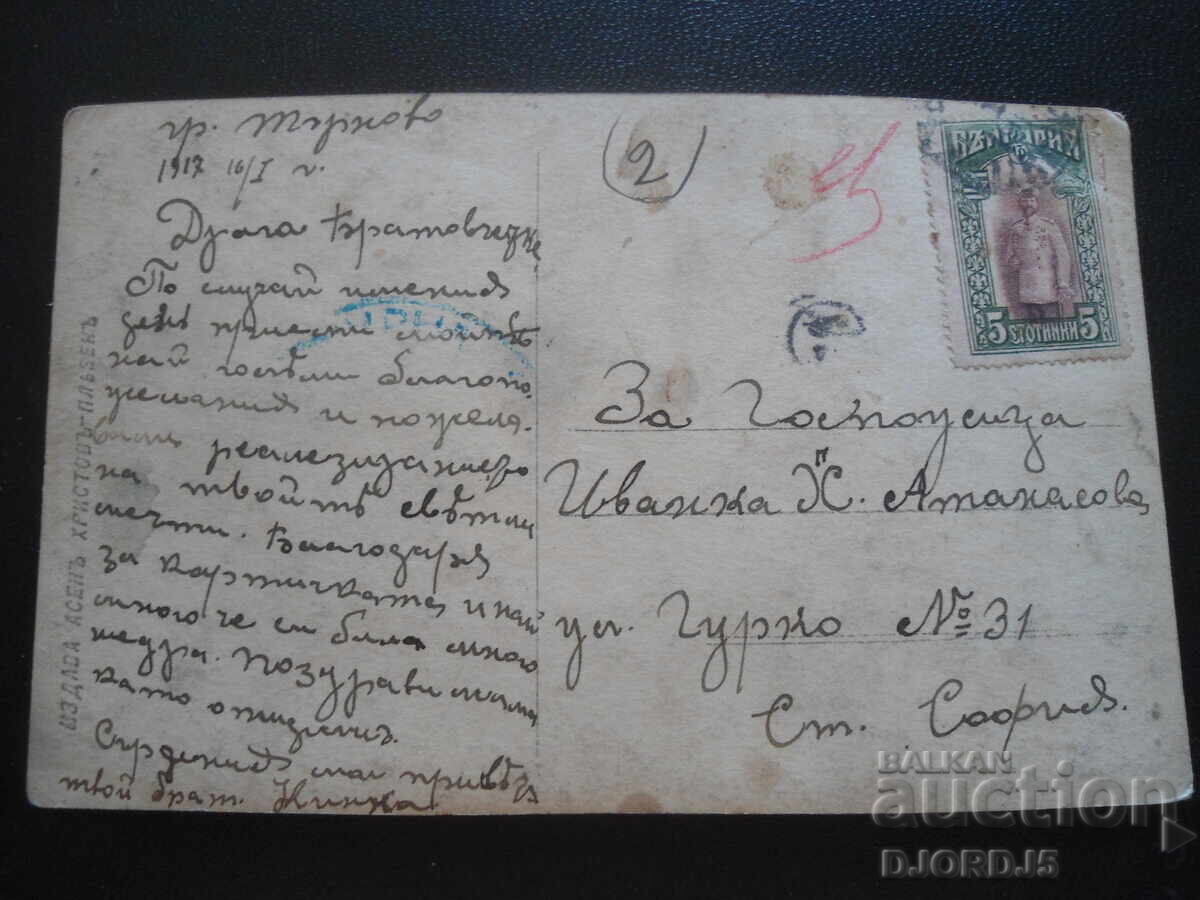 гр. Търново
1917 16/I г.
Драга Братовчедке
По случай имения
день приеми моитѣ
най топли благопо
желания и пожела
реализирание
на твоитѣ свѣтли
мечти. Благодаря
за картичката и най
много че си била много
щедра. Поздрави мама
като
Сърдечния ми привѣтъ
твой брат. Нинка
ИЗДАВА АСЕНЪ ХРИСТОВЪ-ПЛѢВЕНЪ
2
БЪЛГАРИЯ
5 СТОТИНКИ 5
За Госпоѝца
Иванка Н. Атанасова
ул. Гурко № 31
Ст. София.
BALKAN
auction
DJORDJ5